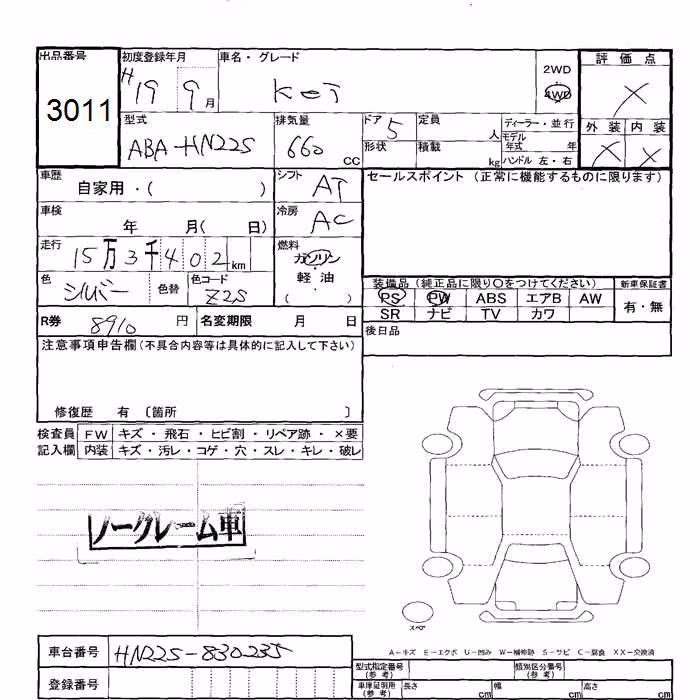 出品番号 初度登録年月 車名・グレード 2WD 評価点
3011 H19 9月 Kei 4WD ×
型式 排気量 ドア 5 定員 人 ディーラー・並行 外装 内装
ABA-HN22S 660 cc 形状 積載 kg モデル年式 年 × ×
ハンドル 左・右
車歴 自家用・( ) シフト AT セールスポイント (正常に機能するものに限ります)
車検 年 月( 日) 冷房 AC
走行 15万3千402km 燃料 ガソリン・軽油・( )
色 シルバー 色替 色コード Z2S 装備品 (純正品に限り〇をつけてください) 新車保証書
PS PW ABS エアB AW 有・無
R券 8910円 名変期限 月 日 SR ナビ TV カワ
注意事項申告欄(不具合内容等は具体的に記入して下さい) 後日品
修復歴 有 〔箇所 〕
検査員 FW キズ・飛石・ヒビ割・リペア跡・×要
記入欄 内装 キズ・汚レ・コゲ・穴・スレ・キレ・破レ
ノークレーム車
スペア
車台番号 HN22S-830235 A-キズ E-エクボ U-凹み W-補修跡 S-サビ C-腐食 XX-交換済
型式指定番号(参考) 類別区分番号(参考)
登録番号 車庫証明用(参考) 長さ cm 幅 cm 高さ cm